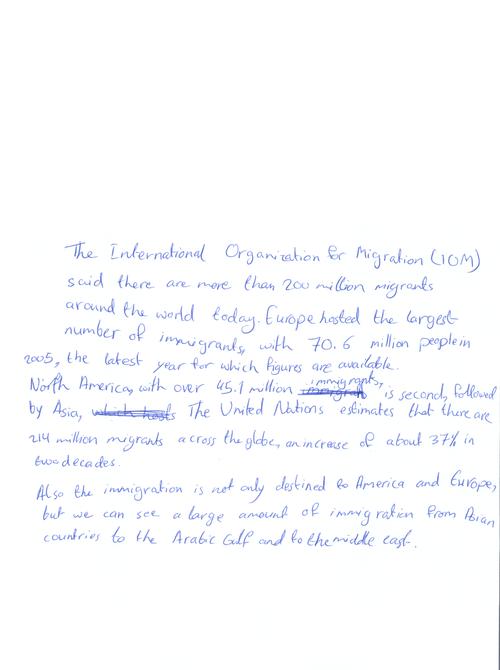 The International Organization for Migration (IOM)
said there are more than 200 million migrants
around the world today. Europe hosted the largest
number of immigrants, with 70.6 million people in
2005, the latest year for which figures are available.
North America, with over 45.1 million immigrants, is second, followed
by Asia, which hosts The United Nations estimates that there are
214 million migrants across the globe, an increase of about 37% in
two decades.
Also the immigration is not only destined to America and Europe,
but we can see a large amount of immigration from Asian
countries to the Arabic Gulf and to the middle east.